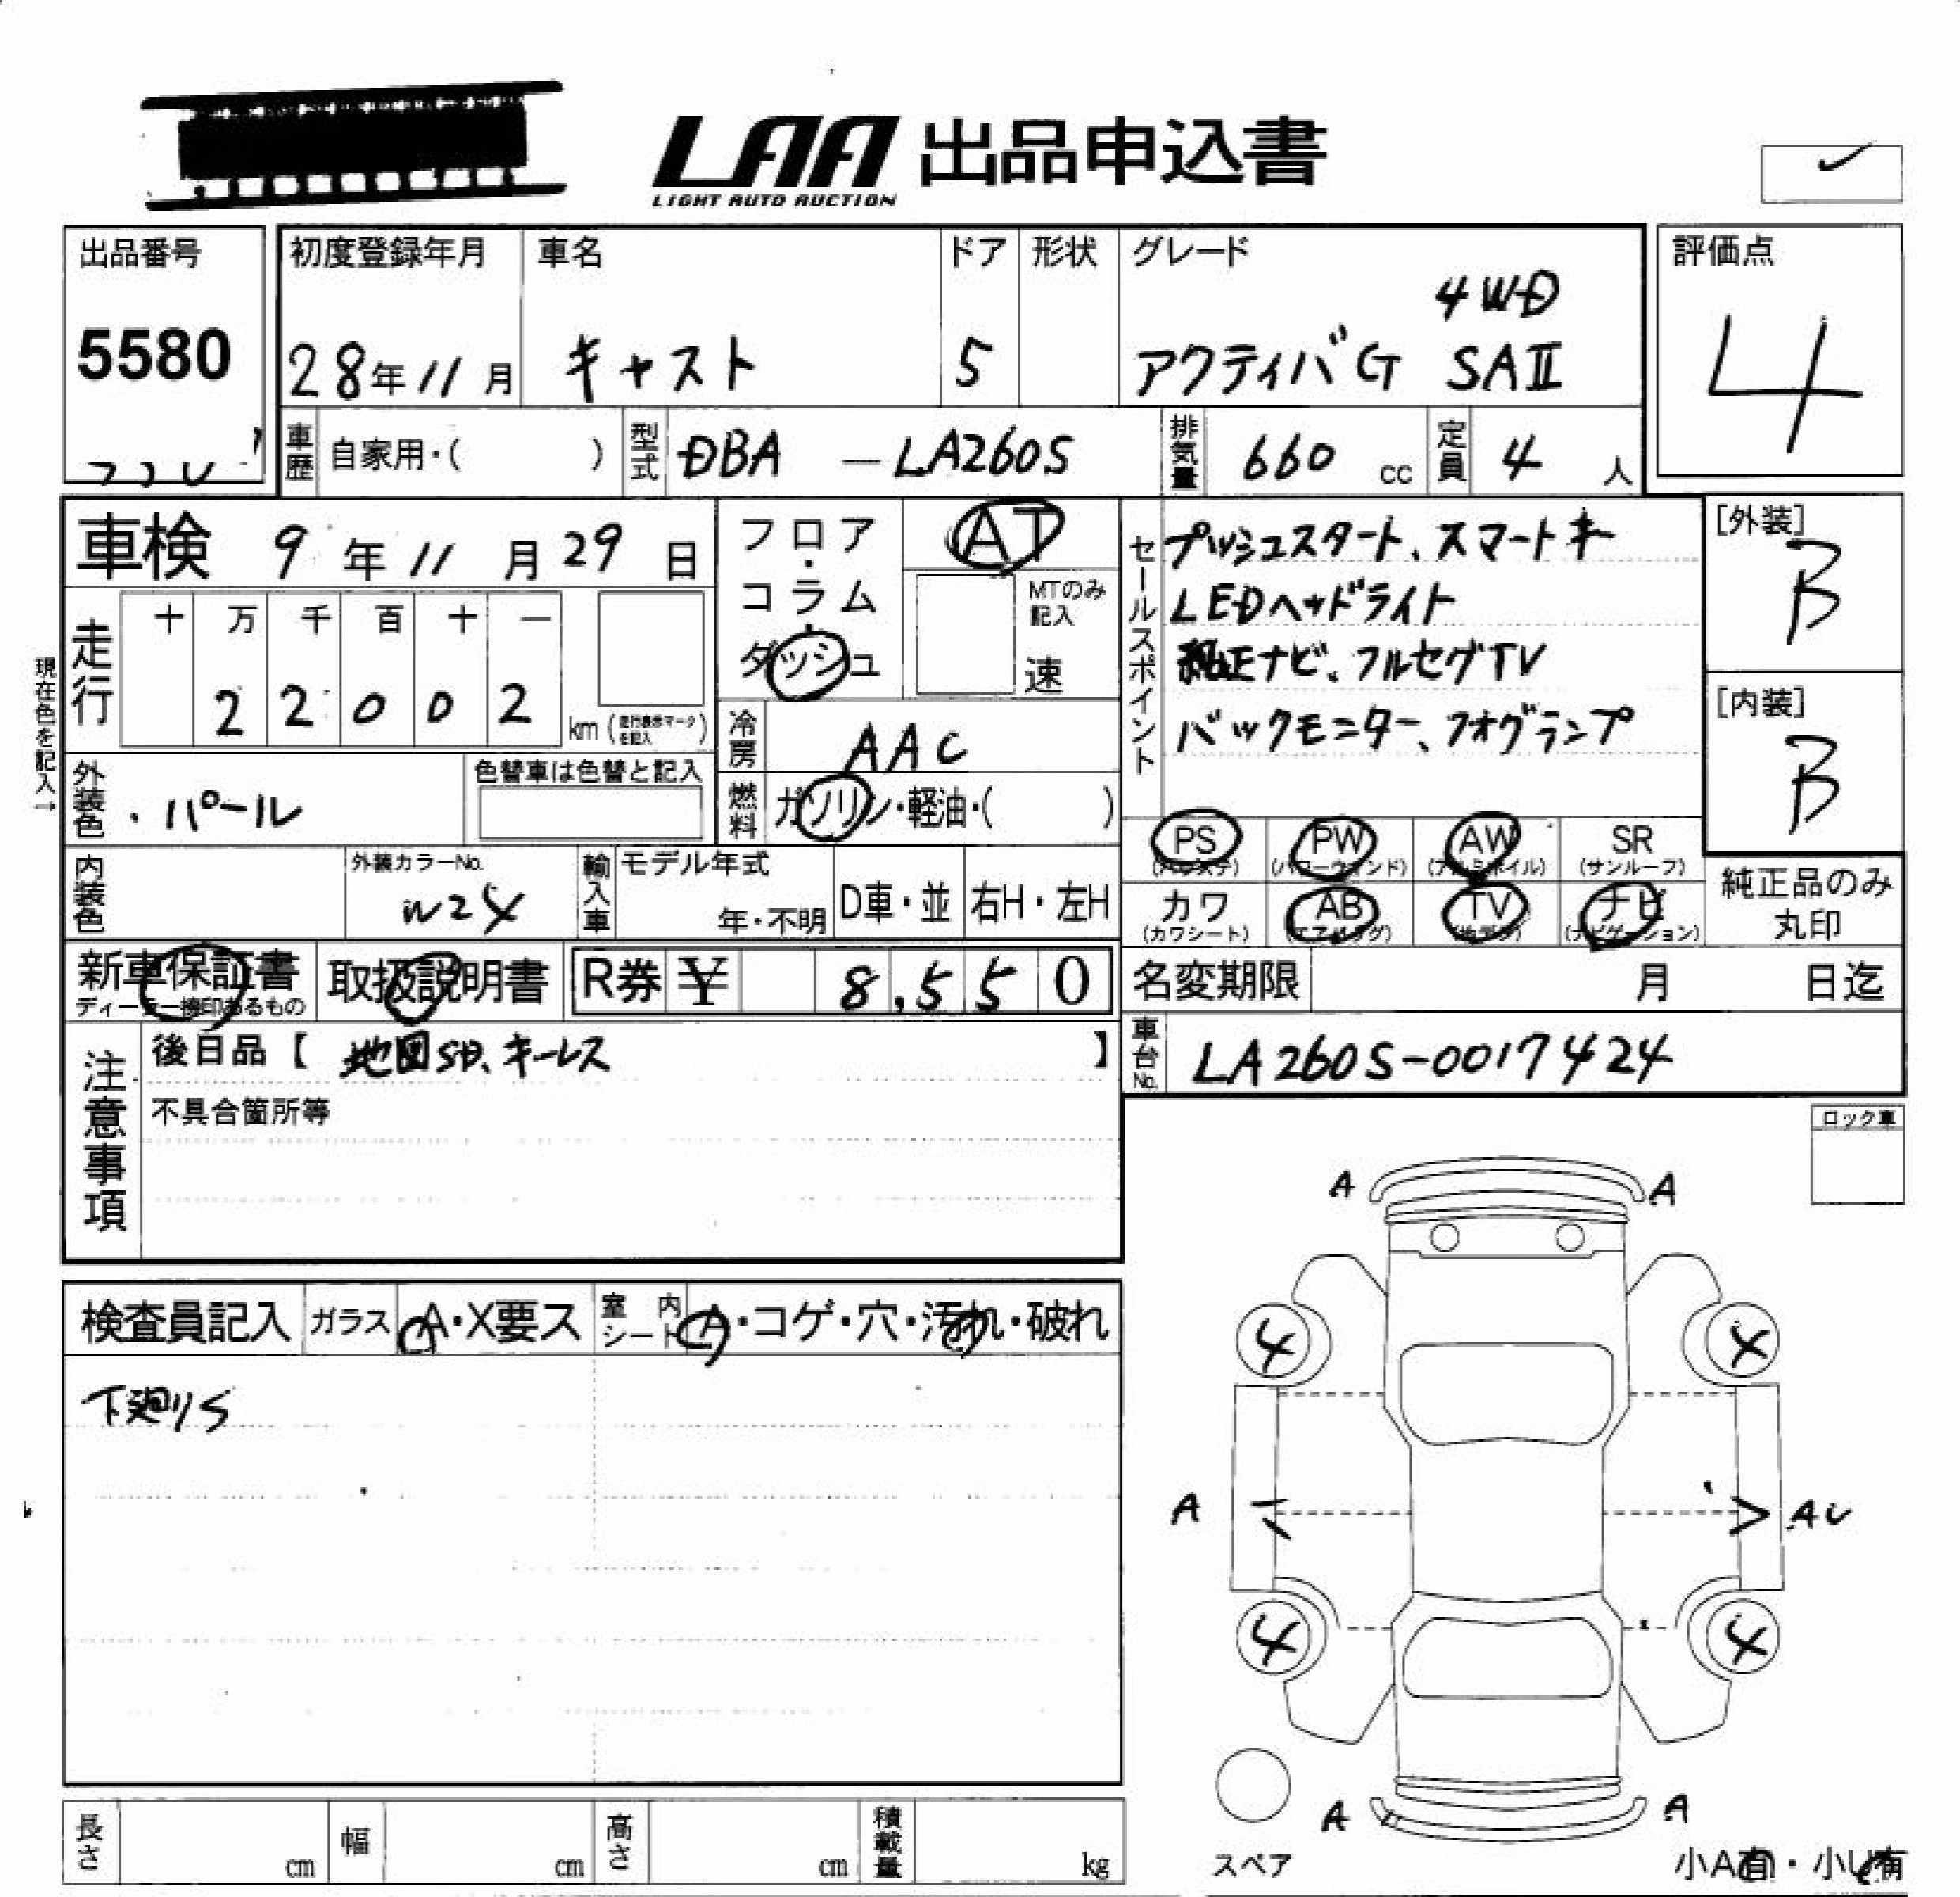 LAA 出品申込書
LIGHT AUTO AUCTION
出品番号
5580
初度登録年月
28年11月
車名
キャスト
ドア
5
形状
グレード
4WD
アクティバG SAII
評価点
4
車歴 自家用・( )
型式 DBA - LA260S
排気量 660 cc
定員 4 人
車検 9年11月29日
フロア・コラム・ダッシュ
AT
MTのみ記入
速
セールスポイント
プッシュスタート、スマートキー
LEDヘッドライト
純正ナビ、フルセグTV
バックモニター、フォグランプ
[外装]
B
[内装]
B
現在色を記入→
走行
十 万 千 百 十 一
2 2 0 0 2
km (走行表示マークを記入)
冷房 AAC
燃料 ガソリン・軽油・( )
外装色 パール
色替車は色替と記入
PS (パワステ)
PW (パワーウィンド)
AW (アルミホイル)
SR (サンルーフ)
カワ (カワシート)
AB (エアバッグ)
TV (地デジ)
ナビ (ナビゲーション)
純正品のみ
丸印
内装色
外装カラーNo.
W24
輸入車
モデル年式
年・不明
D車・並
右H・左H
新車保証書
ディーラー捺印あるもの
取扱説明書
R券 ¥ 8,550
名変期限 月 日迄
車台No. LA260S-0017424
注意事項
後日品【 地図SD、キーレス 】
不具合箇所等
ロック車
検査員記入
ガラス A・X要ス
室内シート A・コゲ・穴・汚れ・破れ
下廻りS
A A
4 4
A AU
4 4
A A
スペア
小A有・小U有
長さ cm
幅 cm
高さ cm
積載量 kg